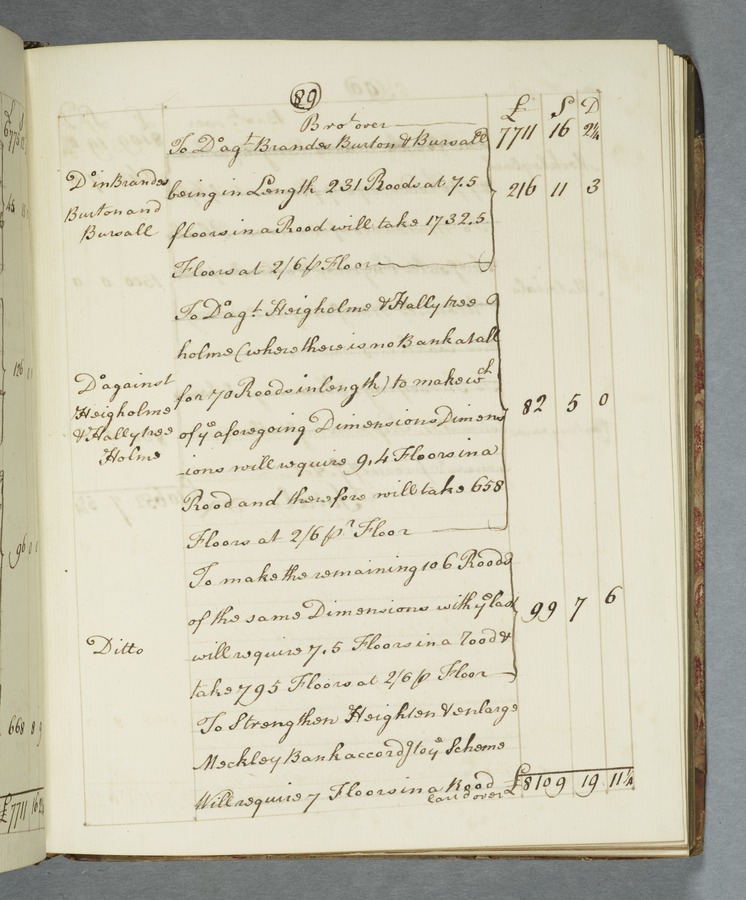 89
£ S D
Bro.t over 7711 16 2¼
To Do ag.t Brandes Burton & Bursall
Do in Brandes
Burton and
Bursall
being in Length 231 Roods at 7.5 216 11 3
floors in a Rood will take 1732.5
Floors at 2/6 p Floor
To Do ag.t Heigholme & Hallytree
holme (where there is no Bank at all
Do against
Heigholme
& Hallytree
Holme
for 70 Roods in length) to make wch
of ye aforegoing Dimensions Dimens 82 5 0
-ions will require 9,4 Floors in a
Rood and therefore will take 658
Floors at 2/6 pr Floor
To make the remaining 106 Roods
of the same Dimensions with ye last 99 7 6
Ditto
will require 7.5 Floors in a Rood &
take 795 Floors at 2/6 p Floor
To Strengthen Heighten & enlarge
Meckley Bank accordg to ye Scheme
Will require 7 Floors in a Rood
Caried over £8109 19 11¼
£ S
6775
45
126 11
96 0 0
668 8 9
£7711 16 2¼